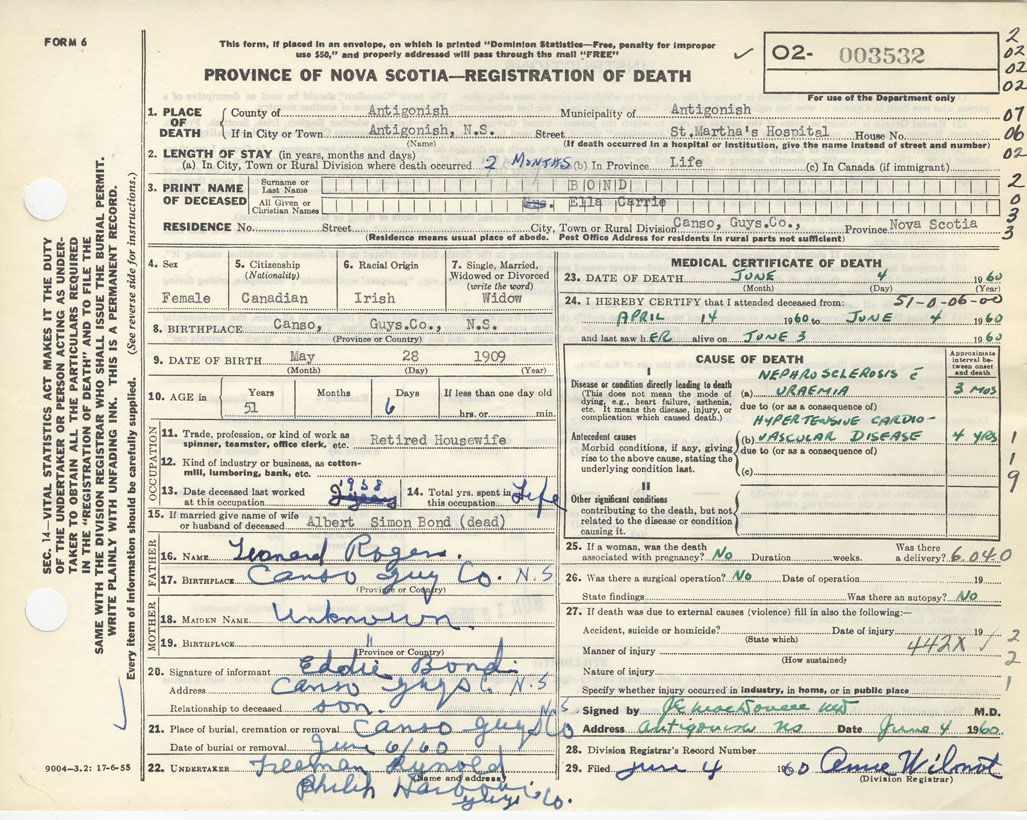 FORM 6
This form, if placed in an envelope, on which is printed "Dominion Statistics—Free, penalty for improper
use $50," and properly addressed will pass through the mail "FREE"
PROVINCE OF NOVA SCOTIA—REGISTRATION OF DEATH
02- 003532
For use of the Department only
2
02
02
02
07
06
02
2
0
3
3
SEC. 14—VITAL STATISTICS ACT MAKES IT THE DUTY
OF THE UNDERTAKER OR PERSON ACTING AS UNDER-
TAKER TO OBTAIN ALL THE PARTICULARS REQUIRED
IN THE "REGISTRATION OF DEATH" AND TO FILE THE
SAME WITH THE DIVISION REGISTRAR WHO SHALL ISSUE THE BURIAL PERMIT.
WRITE PLAINLY WITH UNFADING INK. THIS IS A PERMANENT RECORD.
Every item of information should be carefully supplied. (See reverse side for instructions.)
1. PLACE OF DEATH County of Antigonish Municipality of Antigonish
If in City or Town Antigonish, N.S. Street St.Martha's Hospital House No.
(Name) (If death occurred in a hospital or institution, give the name instead of street and number)
2. LENGTH OF STAY (in years, months and days)
(a) In City, Town or Rural Division where death occurred 2 MONTHS (b) In Province Life (c) In Canada (if immigrant)
3. PRINT NAME OF DECEASED Surname or Last Name BOND
All Given or Christian Names Mrs. Ella Carrie
RESIDENCE No. Street City, Town or Rural Division Canso, Guys.Co., Province Nova Scotia
(Residence means usual place of abode. Post Office Address for residents in rural parts not sufficient)
4. Sex Female
5. Citizenship (Nationality) Canadian
6. Racial Origin Irish
7. Single, Married, Widowed or Divorced (write the word) Widow
8. BIRTHPLACE Canso, Guys.Co., N.S.
(Province or Country)
9. DATE OF BIRTH May 28 1909
(Month) (Day) (Year)
10. AGE in Years 51 Months Days 6 If less than one day old hrs. or min.
OCCUPATION
11. Trade, profession, or kind of work as spinner, teamster, office clerk, etc. Retired Housewife
12. Kind of industry or business, as cotton-mill, lumbering, bank, etc.
13. Date deceased last worked at this occupation 1958
14. Total yrs. spent in this occupation Life
15. If married give name of wife or husband of deceased Albert Simon Bond (dead)
FATHER
16. NAME Leonard Rogers.
17. BIRTHPLACE Canso Guy Co. N.S
(Province or Country)
MOTHER
18. MAIDEN NAME Unknown.
19. BIRTHPLACE "
(Province or Country)
20. Signature of informant Eddie Bond.
Address Canso Guys C. N.S
Relationship to deceased son.
21. Place of burial, cremation or removal Canso Guys Co N.S
Date of burial or removal June 6/60
22. UNDERTAKER Freeman
(Name and address)
Philip Guys Co.
9004—3.2: 17-6-55
MEDICAL CERTIFICATE OF DEATH
23. DATE OF DEATH JUNE 4 1960
(Month) (Day) (Year)
24. I HEREBY CERTIFY that I attended deceased from: 51-0-06-00
APRIL 14 1960 to JUNE 4 1960
and last saw hER alive on JUNE 3 1960
CAUSE OF DEATH
Approximate interval between onset and death
I
Disease or condition directly leading to death
(This does not mean the mode of dying, e.g., heart failure, asthenia, etc. It means the disease, injury, or complication which caused death.)
NEPHROSCLEROSIS c̄
(a) URAEMIA 3 MOS
due to (or as a consequence of)
HYPERTENSIVE CARDIO-
Antecedent causes
Morbid conditions, if any, giving rise to the above cause, stating the underlying condition last.
(b) VASCULAR DISEASE 4 YRS
due to (or as a consequence of)
(c)
II
Other significant conditions
contributing to the death, but not related to the disease or condition causing it.
1
1
9
25. If a woman, was the death associated with pregnancy? No Duration weeks. Was there a delivery? 6.040
26. Was there a surgical operation? No Date of operation 19
State findings Was there an autopsy? No
27. If death was due to external causes (violence) fill in also the following:—
Accident, suicide or homicide? Date of injury 19
(State which)
Manner of injury 442X
(How sustained)
Nature of injury
Specify whether injury occurred in industry, in home, or in public place
2
2
1
Signed by M.D.
Address Antigonish NS Date June 4 1960.
28. Division Registrar's Record Number
29. Filed June 4 1960 Anne Wilmot
(Division Registrar)